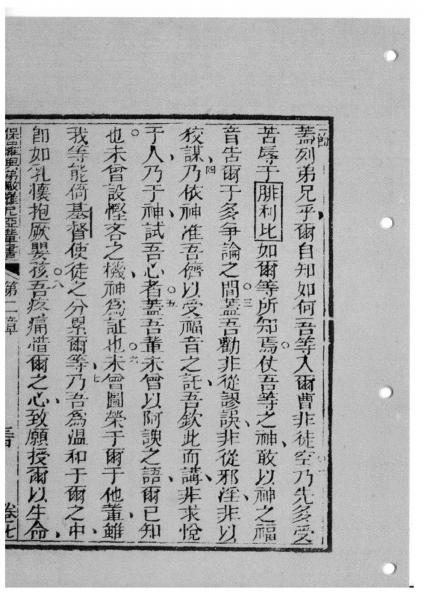 蓋列弟兄乎爾自知如何吾等入爾曹非徒空乃先多受
苦辱于腓利比如爾等所知焉使吾等之神敢以神之福
音吿爾于多爭論之間蓋吾勸非從謬誤非從邪淫非以
狡謀乃依神准吾儕以受福音之託吾欽此而講非求悅
于人乃于神試吾心者蓋吾輩未曾以阿諛之語爾已知
也未曾設慳吝之機神為証也未曾圖榮于爾于他輩雖
我等能倚基督使徒之分累爾等乃吾為溫和于爾之中
卽如乳懷抱厥嬰孩吾疼痛惜爾之心致願授爾以生命
第二章 卷七